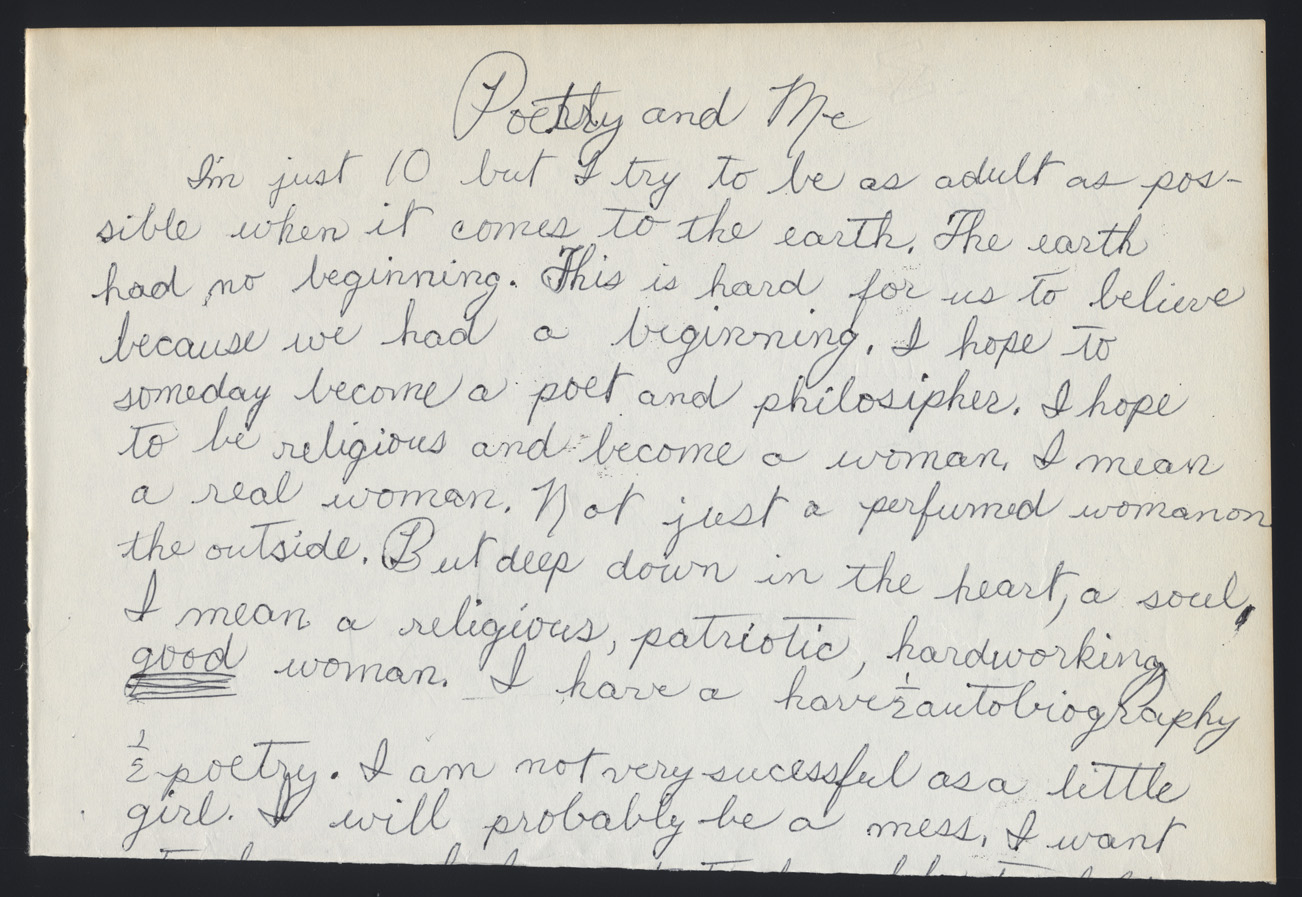 Poetry and Me
I'm just 10 but I try to be as adult as pos-
sible when it comes to the earth. The earth
had no beginning. This is hard for us to believe
because we had a beginning. I hope to
someday become a poet and philosipher. I hope
to be religious and become a woman. I mean
a real woman. Not just a perfumed woman on
the outside. But deep down in the heart, a soul,
I mean a religious, patriotic, hardworking
good woman. I have a have ½ autobiography
½ poetry. I am not very sucessful as a little
girl. I will probably be a mess. I want